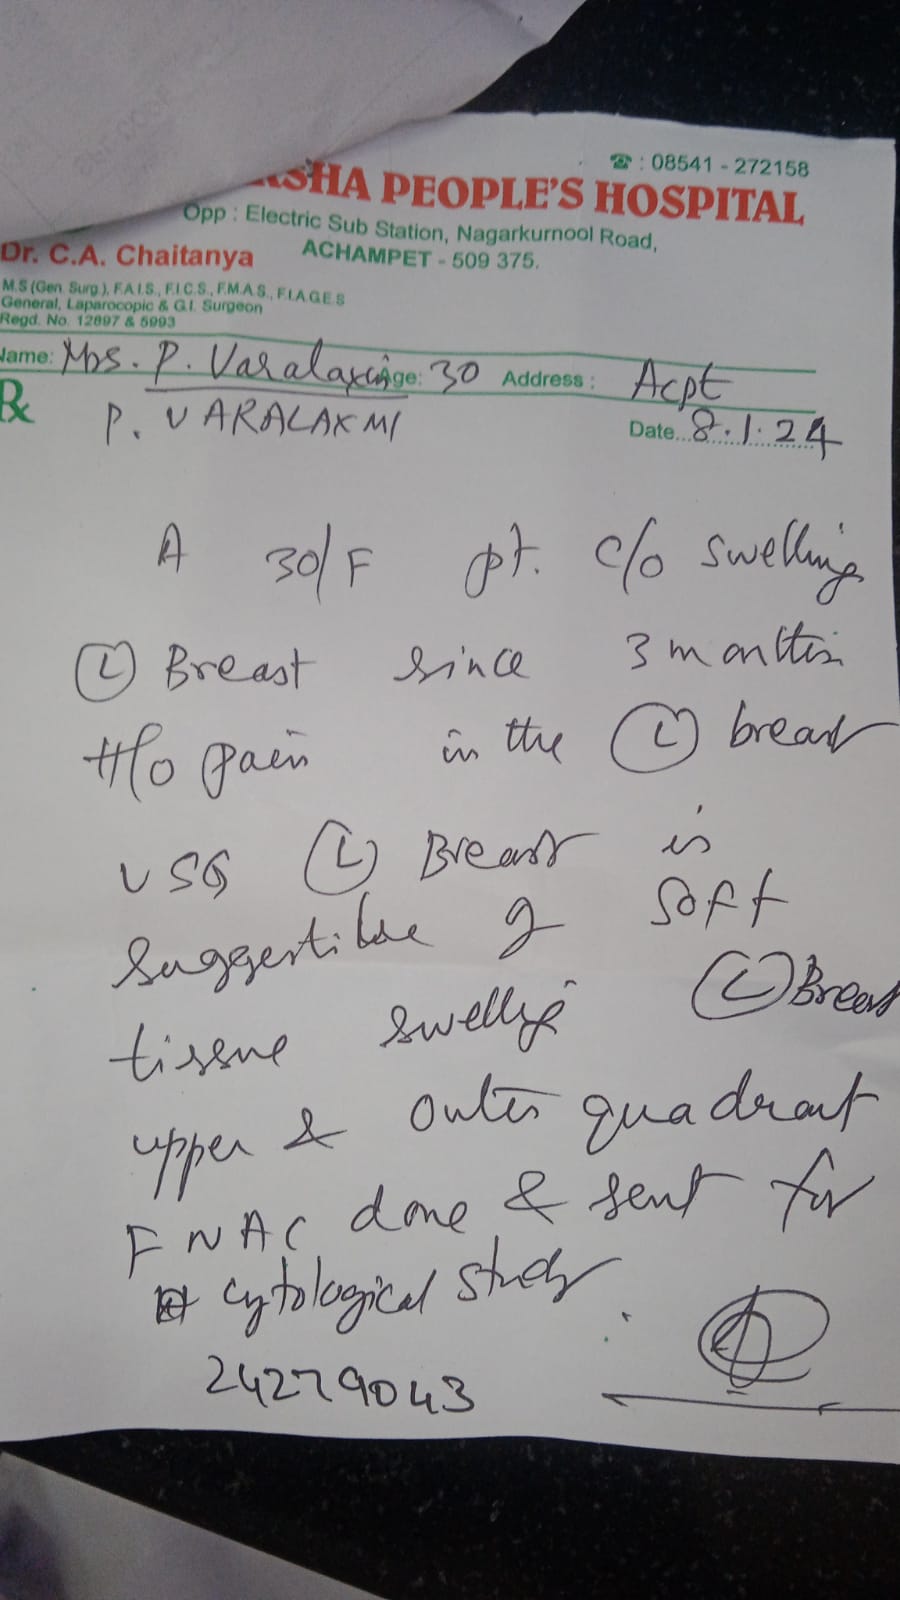 ☎ : 08541 - 272158
RSHA PEOPLE'S HOSPITAL
Opp : Electric Sub Station, Nagarkurnool Road,
ACHAMPET - 509 375.
Dr. C.A. Chaitanya
M.S (Gen. Surg.), F.A.I.S., F.I.C.S., F.M.A.S., F.I.A.G.E.S
General, Laparocopic & G.I. Surgeon
Regd. No. 12897 & 5993
Name: Mrs. P. Varalaxmi Age: 30 Address : Acpt
Rx P. VARALAXMI Date...8.1.24
A 30/F pt. c/o swelling
(L) Breast since 3 months
H/o pain in the (L) breast
USG (L) Breast is
suggestive of soft
tissue swelling (L) Breast
upper & outer quadrant
FNAC done & sent for
cytological study
24279043